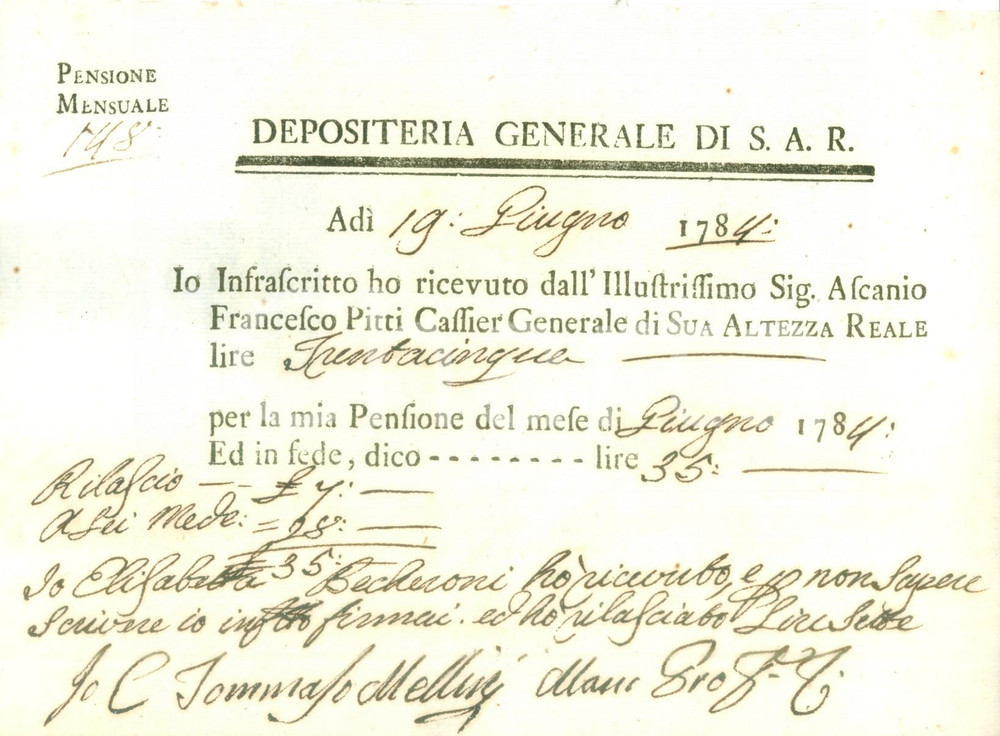 PENSIONE
MENSUALE
148
DEPOSITERIA GENERALE DI S. A. R.
Adì 19: Giugno 1784:
Io Infraſcritto ho ricevuto dall' Illuſtriſſimo Sig. Aſcanio
Franceſco Pitti Caſſier Generale di SUA ALTEZZA REALE
lire Trentacinque
per la mia Penſione del meſe di Giugno 1784:
Ed in fede, dico - - - - - - - - lire 35:
Rilaſcio — £ 7: —
A Lei Mede: = 28: —
£ 35:
Io Eliſabetta Becheroni ho ricevuto, e p non Sapere
Scrivere io infrtto firmai. ed ho rilaſciato Lire Sette
Io C Tommaſo Mellini Mano